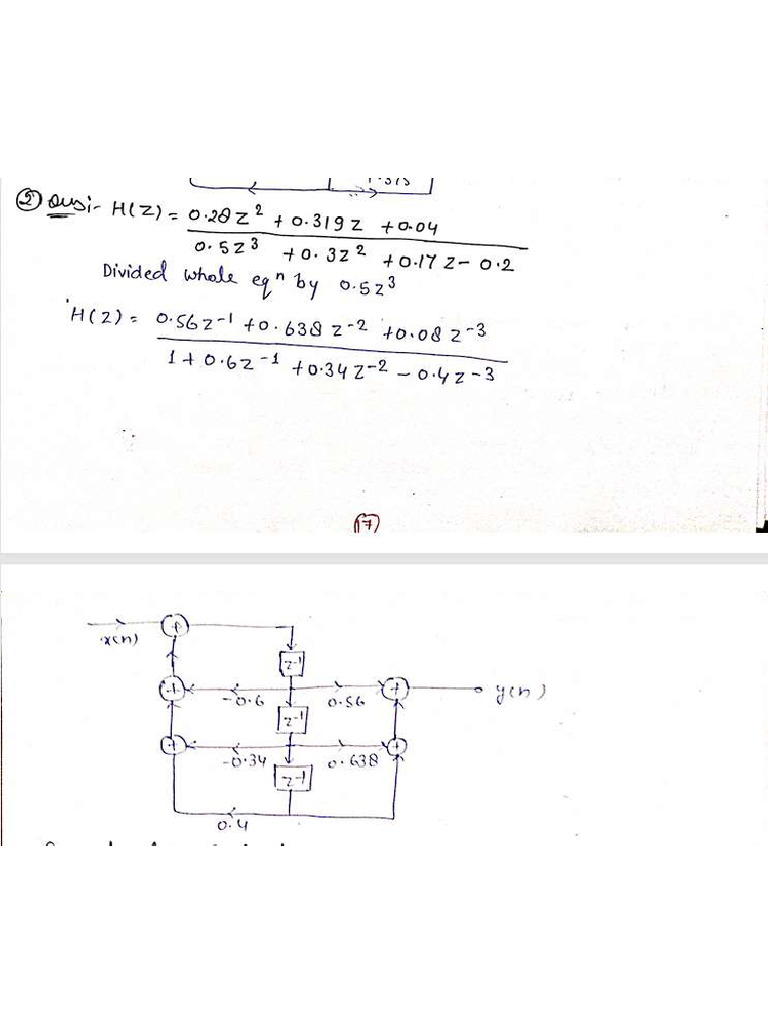 1.313
② Ans:- H(Z) = 0.28z² + 0.319z + 0.04
0.5z³ + 0.3z² + 0.17z - 0.2
Divided whole eqⁿ by 0.5z³
H(z) = 0.56z⁻¹ + 0.638z⁻² + 0.08z⁻³
1 + 0.6z⁻¹ + 0.34z⁻² - 0.4z⁻³
17
x(n) +
z⁻¹
+ -0.6 0.56 + y(n)
z⁻¹
+ -0.34 0.638 +
z⁻¹
0.4